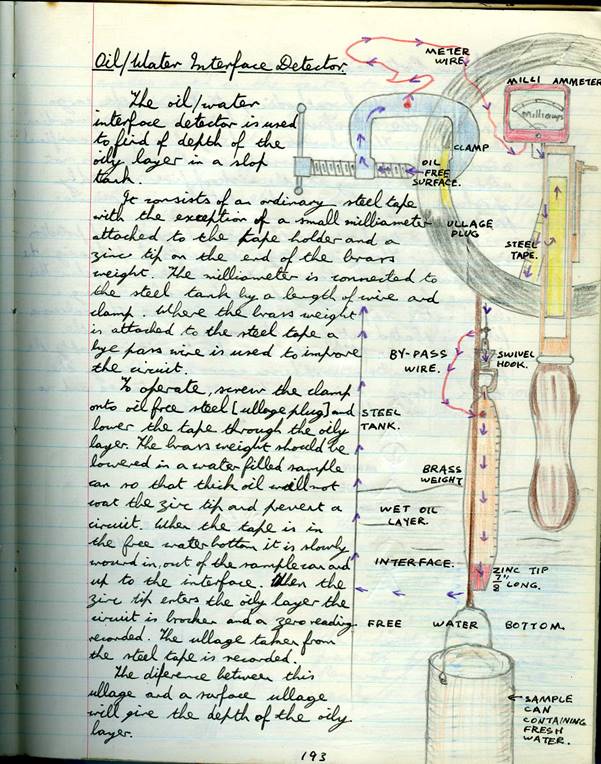 Oil/Water Interface Detector.
The oil/water
interface detector is used
to find of depth of the
oily layer in a slop
tank.
It consists of an ordinary steel tape
with the exception of a small milliameter
attached to the tape holder and a
zinc tip on the end of the brass
weight. The milliameter is connected to
the steel tank by a length of wire and
clamp. Where the brass weight
is attached to the steel tape a
bye pass wire is used to improve
the circuit.
To operate, screw the clamp
onto oil free steel [ullage plug] and
lower the tape through the oily
layer. The brass weight should be
lowered in a water filled sample
can so that thick oil will not
coat the zinc tip and prevent a
circuit. When the tape is in
the free water bottom it is slowly
wound in, out of the sample can and
up to the interface. When the
zinc tip enters the oily layer the
circuit is brocken and a zero reading
recorded. The ullage taken from
the steel tape is recorded.
The diference between this
ullage and a surface ullage
will give the depth of the oily
layer.
193
METER
WIRE
MILLI AMMETER
Milliamps
CLAMP
OIL
FREE
SURFACE.
ULLAGE
PLUG
STEEL
TAPE.
BY-PASS
WIRE.
SWIVEL
HOOK.
STEEL
TANK.
BRASS
WEIGHT
WET OIL
LAYER.
INTERFACE.
ZINC TIP
7/8" LONG.
FREE WATER BOTTOM.
SAMPLE
CAN
CONTAINING
FRESH
WATER.